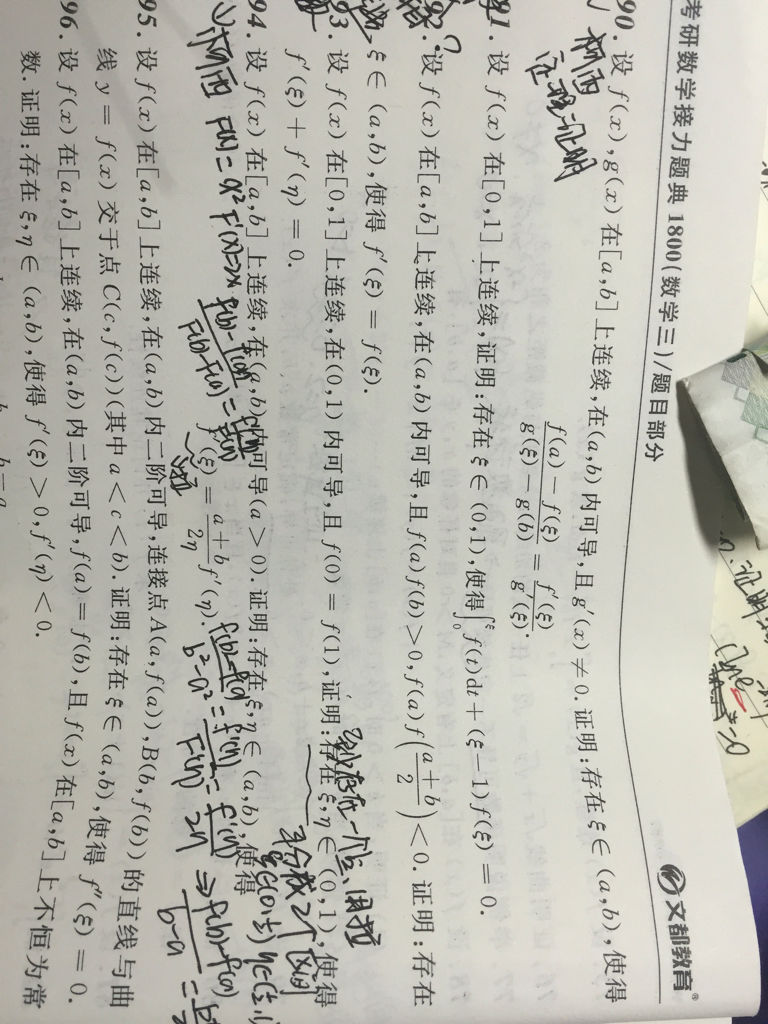 考研数学接力题典 1800(数学三)/题目部分
文都教育®
90. 设 f(x),g(x)在[a,b]上连续,在(a,b)内可导,且 g′(x)≠0. 证明:存在 ξ∈(a,b),使得
f(a)-f(ξ)/g(ξ)-g(b)=f′(ξ)/g′(ξ).
柯西
91. 设 f(x)在[0,1]上连续,证明:存在 ξ∈(0,1),使得∫₀^ξ f(t)dt+(ξ-1)f(ξ)=0.
设 f(x)在[a,b]上连续,在(a,b)内可导,且 f(a)f(b)>0,f(a)f(a+b/2)<0. 证明:存在
ξ∈(a,b),使得 f′(ξ)=f(ξ).
3. 设 f(x)在[0,1]上连续,在(0,1)内可导,且 f(0)=f(1),证明:存在 ξ,η∈(0,1),使得
f′(ξ)+f′(η)=0.
94. 设 f(x)在[a,b]上连续,在(a,b)内可导(a>0). 证明:存在 ξ,η∈(a,b),使得
f′(ξ)=a+b/2η f′(η).
柯西 F(x)=x² F′(x)=2x f(b)-f(a)/F(b)-F(a)=f′(η)/F′(η)
f(b)-f(a)/b²-a²=f′(η)/F′(η)=f′(η)/2η ⇒ f(b)-f(a)/b-a=
ξ∈(0,½) η∈(½,1)
95. 设 f(x)在[a,b]上连续,在(a,b)内二阶可导,连接点 A(a,f(a)),B(b,f(b))的直线与曲
线 y=f(x)交于点 C(c,f(c))(其中 a<c<b). 证明:存在 ξ∈(a,b),使得 f″(ξ)=0.
96. 设 f(x)在[a,b]上连续,在(a,b)内二阶可导,f(a)=f(b),且 f(x)在[a,b]上不恒为常
数. 证明:存在 ξ,η∈(a,b),使得 f′(ξ)>0,f′(η)<0.